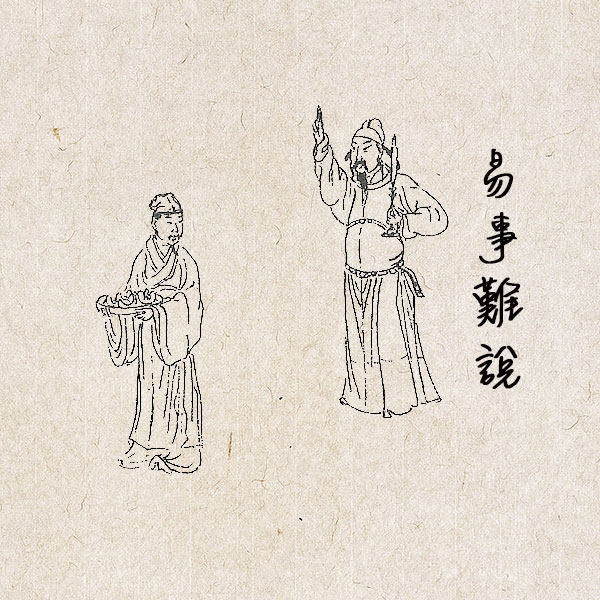 易事難說